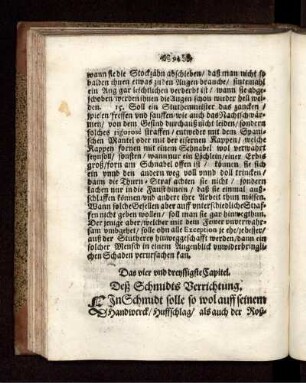 94
wann sie die Stockzähn abschieben / daß man nicht so
balden ihnen etwas zu den Augen brauche / sintemahl
ein Aug gar leichtlichen verderbt ist / wann sie abge-
schoben werden ihnen die Augen schon wieder hell wer-
den. 15. Soll ein Stuttenmeister das zancken /
spielen fressen und sauffen wie auch das Nachtschwär-
men / von dem Gesind durchauß nicht leiden / sondern
solches rigorosè straffen / entweder mit dem Spani-
schen Mantel oder mit der eisernen Kappen / welche
Kappen fornen mit einem Schnabel wol verwahrt
seyn soll / sonsten / wann nur ein Löchlein / einer Erbes
groß / forn am Schnabel offen ist / können sie sich
ein vnnd den andern weg voll vnnd doll trincken /
dann die Thurn-Straf achten sie nicht / sondern
lachen nur in die Faust darum / daß sie einmal auß-
schlaffen können und andere ihre Arbeit thun müssen.
Wann solche Gesellen aber auff unterschiedliche Straf-
fen nicht geben wollen / soll man sie gar hinweg thun.
Der jenige aber / welcher mit dem Feuer unverwahr-
sam umbgehet / solle ohn alle Exception je ehe / je besser /
auß der Stutherey hinweggeschafft werden / dann ein
solcher Mensch in einem Augenblick unwiderbringli-
chen Schaden verursachen kan.
Das vier und dreyssigste Capitel.
Deß Schmidts Verrichtung.
EIn Schmidt solle so wol auff seinem
Handwerck / Huffschlag / als auch der Roß-